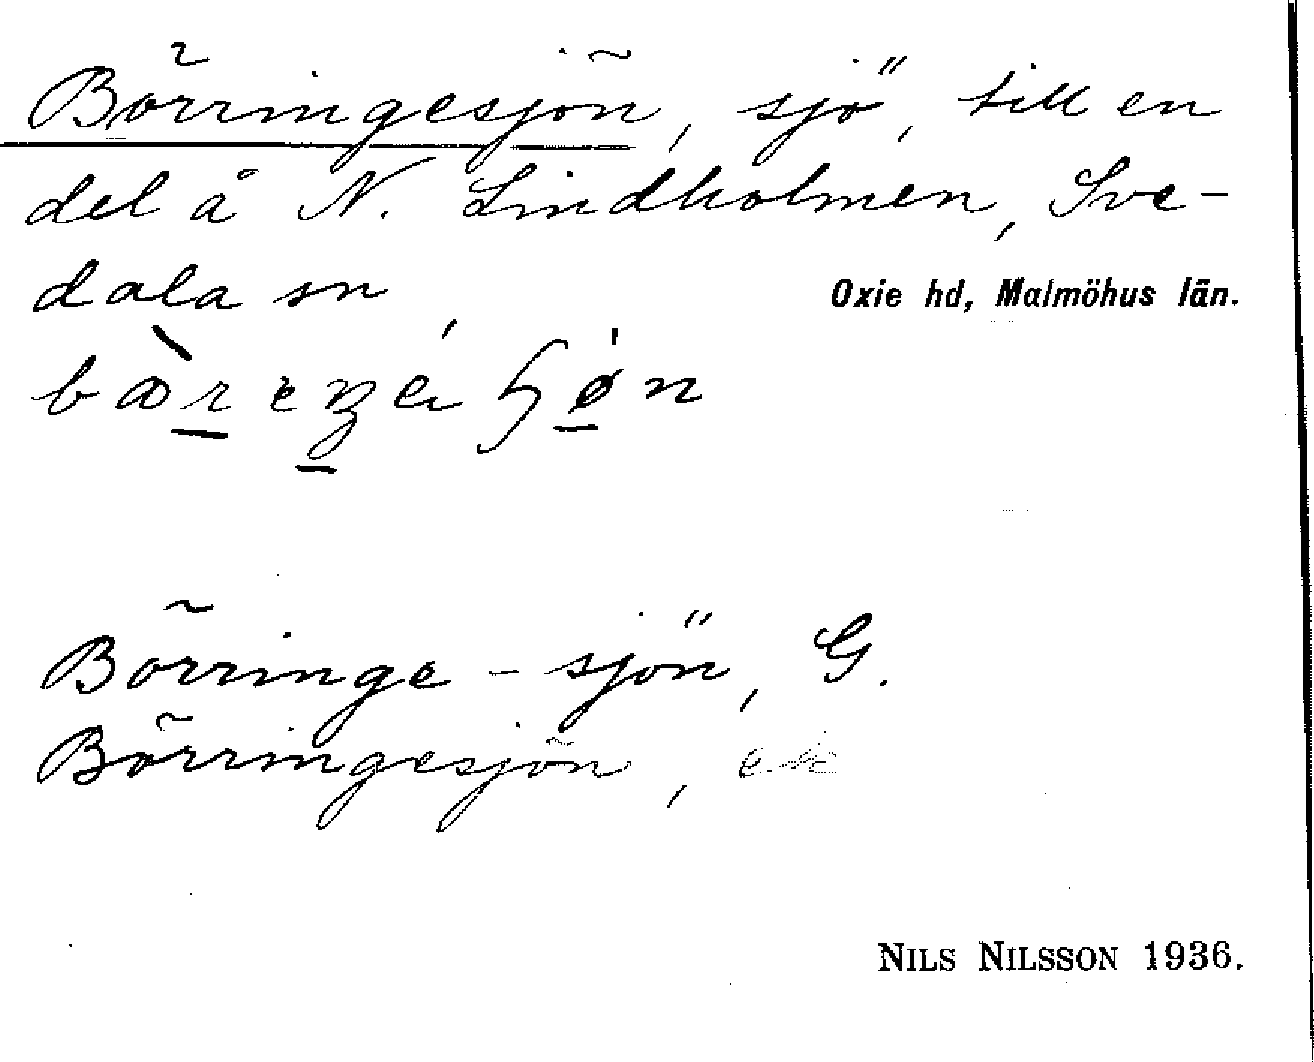 Börringesjön, sjö, till en
del å N. Lindholmen, Sve-
dala sn,
Oxie hd, Malmöhus län.
Börringe - sjön, G.
Börringesjön, ek
NILS NILSSON 1936.